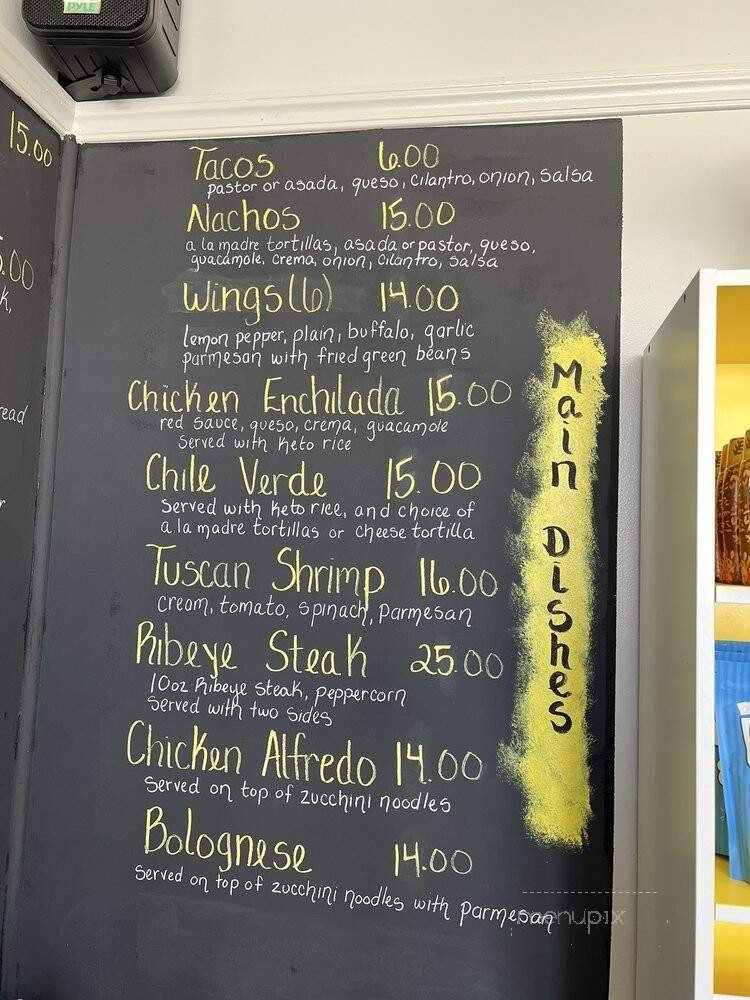 PYLE
15.00
5.00
k,
read
r
Tacos 6.00
pastor or asada, queso, cilantro, onion, salsa
Nachos 15.00
a la madre tortillas, asada or pastor, queso,
guacamole, crema, onion, cilantro, salsa
Wings (6) 14.00
lemon pepper, plain, buffalo, garlic
parmesan with fried green beans
Chicken Enchilada 15.00
red sauce, queso, crema, guacamole
served with keto rice
Chile Verde 15.00
Served with keto rice, and choice of
a la madre tortillas or cheese tortilla
Tuscan Shrimp 16.00
cream, tomato, spinach, parmesan
Ribeye Steak 25.00
10oz Ribeye steak, peppercorn
Served with two sides
Chicken Alfredo 14.00
Served on top of zucchini noodles
Bolognese 14.00
Served on top of zucchini noodles with parmesan
Main Dishes
menupix